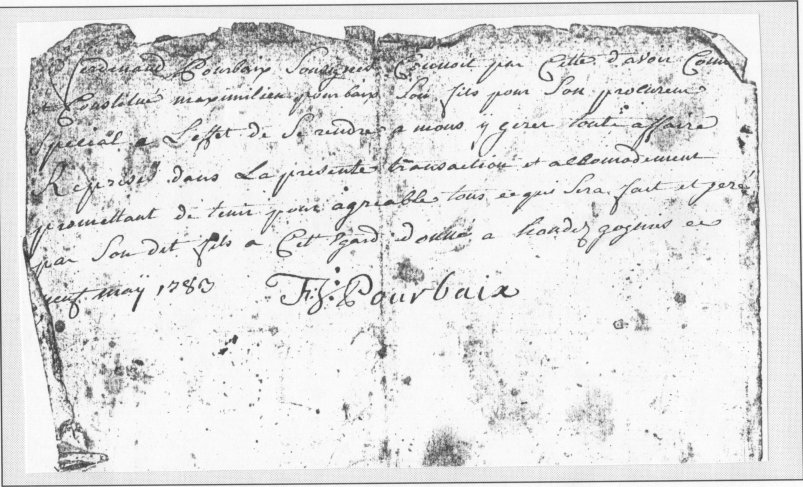 Ferdinand Pourbaix Soussigné Reconnoit par Cette d'avoir Comm
et Constitué maximilien pourbaix Son fils pour Son procureur
special a L'effet de Se rendre a mons y gerer toute affaire
Reprises dans La presente transaction et accomodement
promettant de tenir pour agreable tous ce que Sera fait et geré
par Son dit fils a Cet Egard donné a gognies ce
neuf maÿ 1783 F: J: Pourbaix